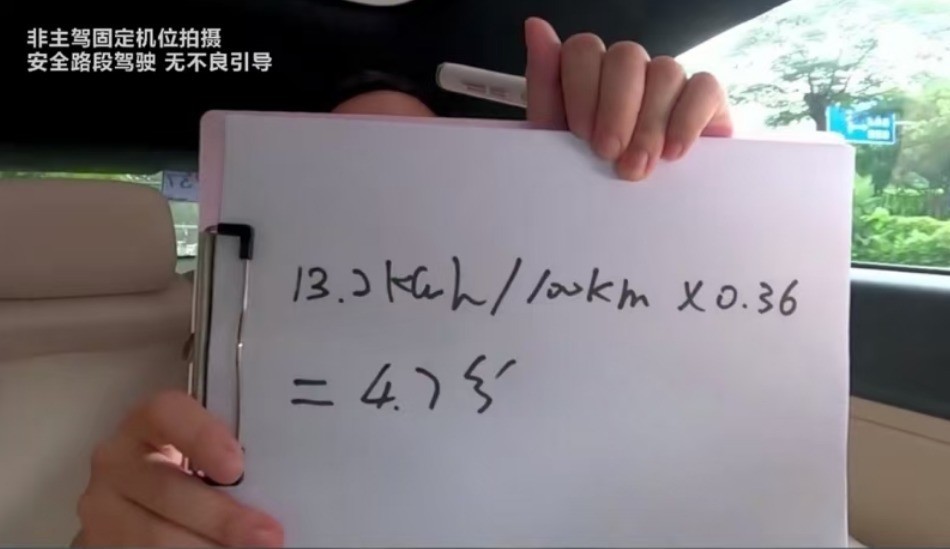 非主驾固定机位拍摄
安全路段驾驶 无不良引导
13.2kwh/100km ×0.36
=4.7分